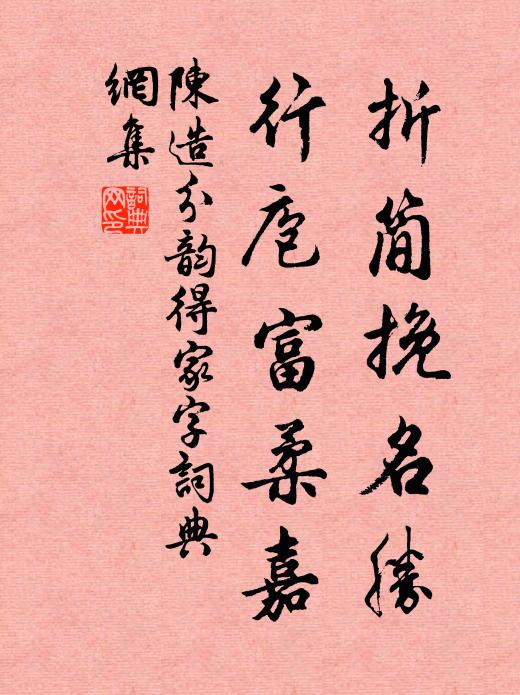 折简挽名勝
行庖富柔嘉
陳造分韵得家字詞典
網集
詞典网印